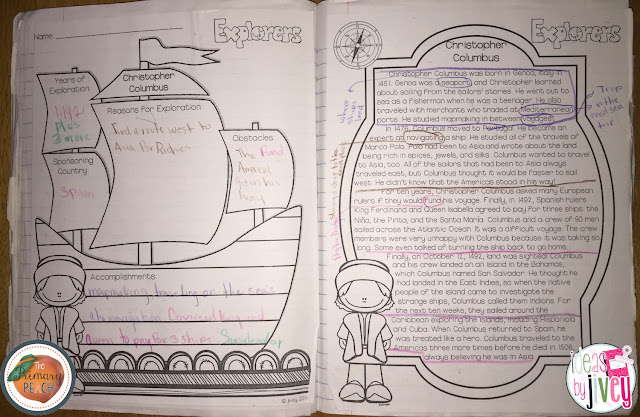 Name:
Explorers
Christopher
Columbus
Years of
Exploration:
1492
Plus
3 more
Reasons For Exploration:
Find a route west to
Asia For Riches
Sponsoring
Country
Spain
Obstacles:
The Fund
in his
way
Accomplishments:
mapmaking traveling on the sea's
Convinced king and
queen to pay for 3 ships
© jivey 201
The
Primary
Peach
Explorers
Christopher
Columbus
Christopher Columbus was born in Genoa, Italy in
1451. Genoa was a seaport, and Christopher learned
about sailing from the sailors' stories. He went out to
sea as a fisherman when he was a teenager. He also
traveled with merchants who traded at Mediterranean
ports. He studied mapmaking in between voyages.
In 1476, Columbus moved to Portugal. He became an
expert at navigating a ship. He studied all of the travels of
Marco Polo. Polo had been to Asia and wrote about the land
being rich in spices, jewels, and silks. Columbus wanted to travel
to Asia, too. All of the sailors that had been to Asia always
traveled east, but Columbus thought it would be faster to sail
west. He didn't know that the Americas stood in his way!
For ten years, Christopher Columbus asked many European
rulers if they would fund his voyage. Finally, in 1492, Spanish rulers
King Ferdinand and Queen Isabella agreed to pay for three ships: the
Niña, the Pinta, and the Santa María. Columbus and a crew of 90 men
sailed across the Atlantic Ocean. It was a difficult voyage. The crew
members were very unhappy with Columbus because it was taking so
long. Some even talked of turning the ship back to go home.
Finally, on October 12, 1492, land was sighted. Columbus
and his crew landed on an island in the Bahamas,
which Columbus named San Salvador. He thought he
had landed in the East Indies, so when the native
people of the island came to investigate the
strange ships, Columbus called them Indians. For
the next ten weeks, they sailed around the
Caribbean exploring the islands, including Hispaniola
and Cuba. When Columbus returned to Spain, he
was treated like a hero. Columbus traveled to the
Americas three more times before he died in 1506,
always believing he was in Asia.
where
ships
land
Trip
in the
sea
ideas
by jivey